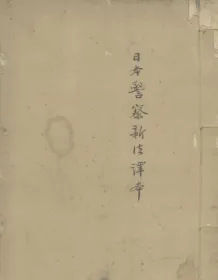 日本警察新法譯本